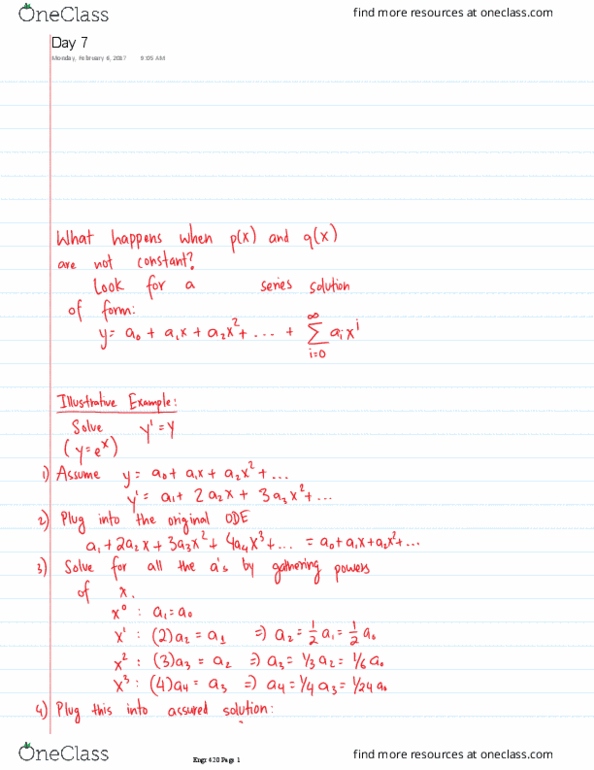 OneClass
find more resources at oneclass.com
Day 7
Monday, February 6, 2017 9:05 AM
What happens when p(x) and q(x)
are not constant?
Look for a series solution
of form:
y = a₀ + a₁x + a₂x² + ... + ∑ aᵢxⁱ
∞
i=0
Illustrative Example:
Solve y' = y
(y=eˣ)
1) Assume y = a₀ + a₁x + a₂x² + ...
y' = a₁ + 2a₂x + 3a₃x² + ...
2) Plug into the original ODE
a₁ + 2a₂x + 3a₃x² + 4a₄x³ + ... = a₀ + a₁x + a₂x² + ...
3) Solve for all the a's by gathering powers
of x.
x⁰ : a₁ = a₀
x¹ : (2)a₂ = a₁ => a₂ = 1/2 a₁ = 1/2 a₀
x² : (3)a₃ = a₂ => a₃ = 1/3 a₂ = 1/6 a₀
x³ : (4)a₄ = a₃ => a₄ = 1/4 a₃ = 1/24 a₀
4) Plug this into assured solution:
OneClass
Engr 420 Page 1
find more resources at oneclass.com